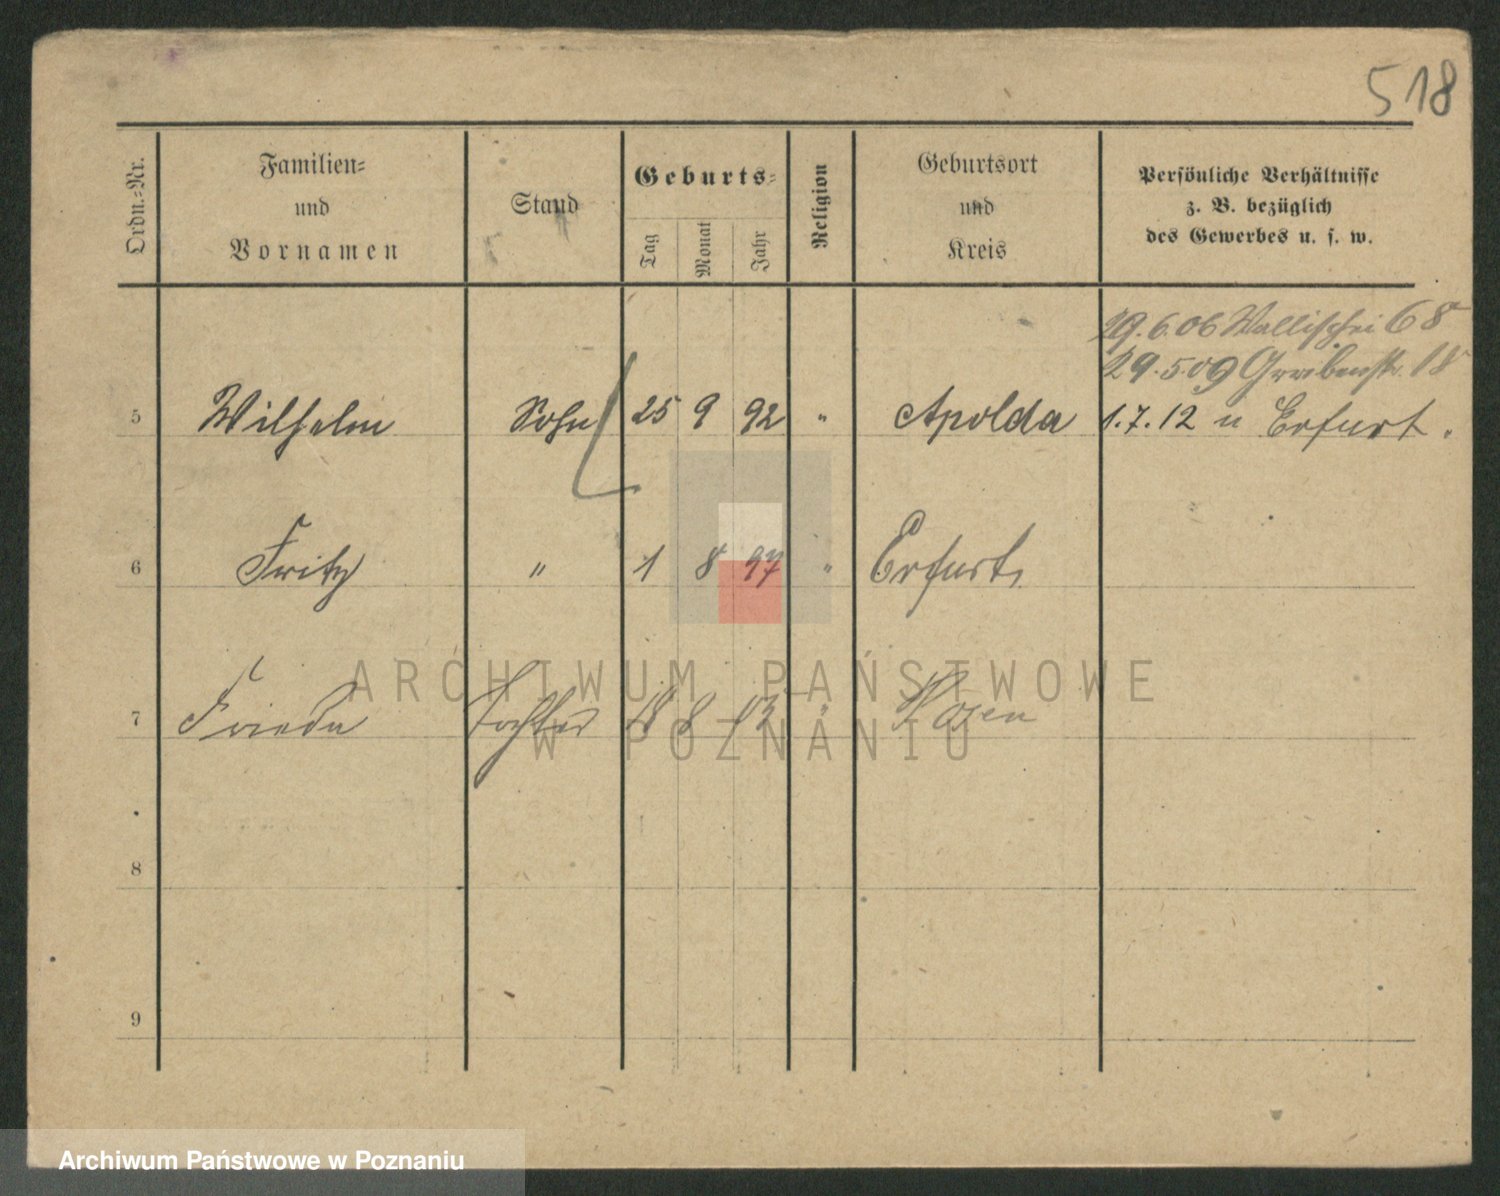 518
Ordn.-Nr.
Familien-
und
Vornamen
Stand
Geburts-
Tag
Monat
Jahr
Religion
Geburtsort
und
Kreis
Persönliche Verhältnisse
z. B. bezüglich
des Gewerbes u. s. w.
29.6.06 Wallischei 68
29.5.09 Grabenstr. 18
5 Wilhelm Sohn 25 9 92 " Apolda 1.7.12 n Erfurt.
6 Fritz " 1 8 97 " Erfurt
7 Frieda Tochter 18 8 03 " Posen
8
9
ARCHIWUM PAŃSTWOWE
W POZNANIU
Archiwum Państwowe w Poznaniu